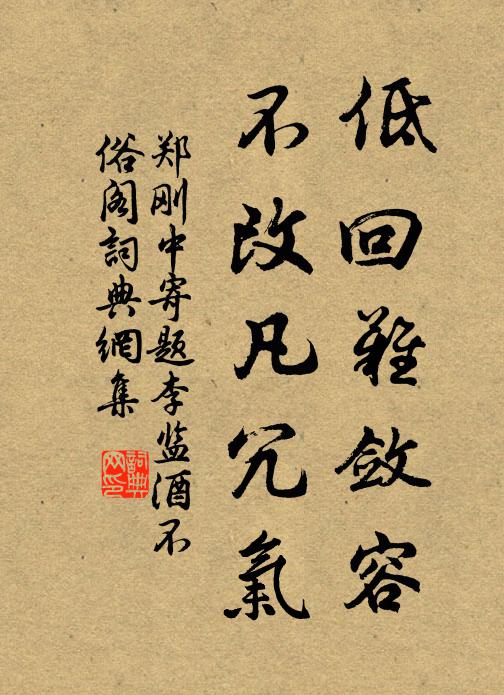 低回難斂容
不改凡冗氣
郑刚中寄题李监酒不
俗阁詞典網集
詞典
网印